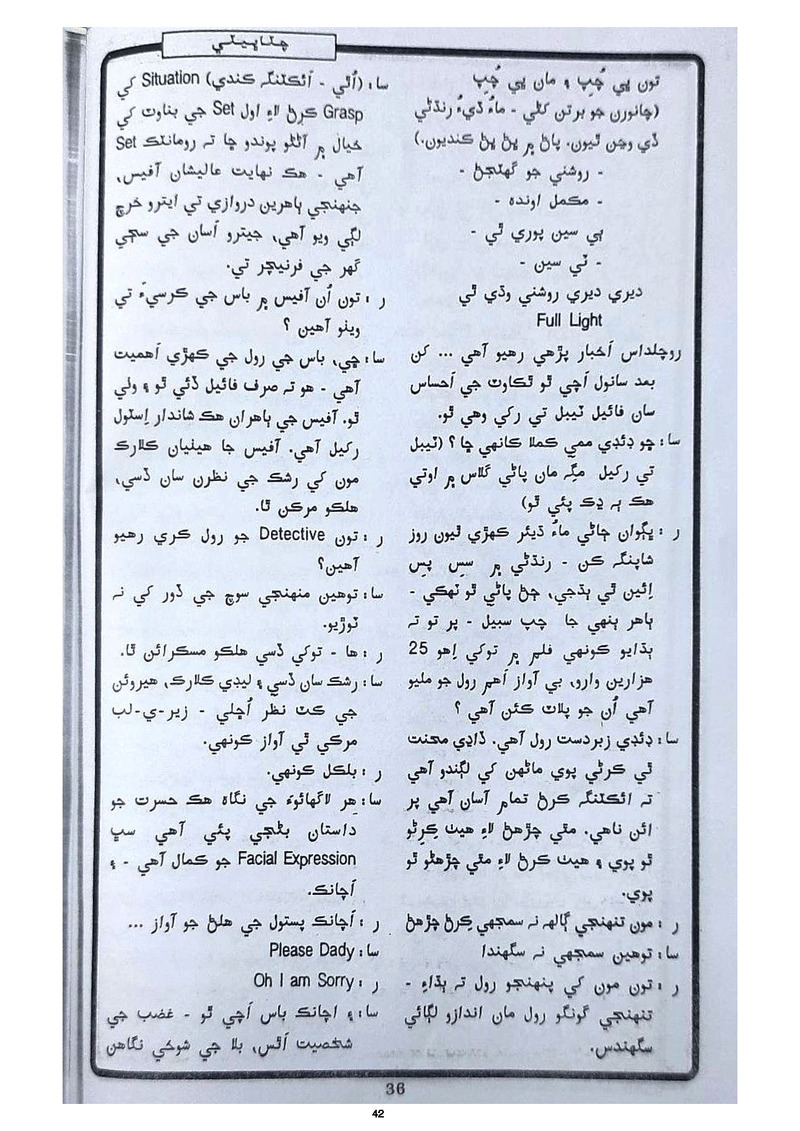 چتاڀيٽي
تون ڀي چُپ ۽ مان ڀي چُپ
(جانورن جو برتن کڻي - ماءُ ڌيءُ رنڌڻي
ڏي وڃن ٿيون. پاڻ ۾ ڀڻ ڀڻ ڪنديون.)
- روشني جو گهٽجڻ -
- مڪمل اونده -
ٻي سين پوري ٿي -
- ٽي سين -
ديري ديري روشني وڌي ٿي
Full Light
روچلداس اَخبار پڙهي رهيو آهي ... کن
بعد سانول اَچي ٿو ٿڪاوٽ جي اَحساس
سان فائيل ٽيبل تي رکي وهي ٿو.
سا: ڇو ڊئڊي ممي ڪملا ڪانهي ڇا؟ (ٽيبل
تي رکيل مگهه مان پاڻي گلاس ۾ اوتي
هڪ ٻه ڍڪ پئي ٿو)
ر : ڀڳوان ڄاڻي ماءُ ڌيئر ڪهڙي ٿيون روز
شاپنگ ڪن - رنڌڻي ۾ سِس پِس
اِئين ٿي ٻڌجي، ڄڻ پاڻي ٿو ٽهڪي -
ٻاهر ٻنهي جا چپ سبيل - پر تو ته
ٻڌايو ڪونهي فلم ۾ توکي اِهو 25
هزارين وارو، بي آواز اَهم رول جو مليو
آهي اُن جو پلاٽ ڪئن آهي ؟
سا: ڊئڊي زبردست رول آهي. ڏاڍي محنت
ٿي ڪرڻي پوي ماڻهن کي لڳندو آهي
ته ائڪٽنگ ڪرڻ تمام آسان آهي پر
ائن ناهي. مٿي چڙهڻ لاءِ هيٺ ڪِرڻو
ٿو پوي ۽ هيٺ ڪرڻ لاءِ مٿي چڙهڻو ٿو
پوي.
ر : مون تنهنجي ڳالهه نہ سمجهي ڪِرڻ چڙهڻ
سا: توهين سمجهي نہ سگهندا
ر : تون مون کي پنهنجو رول تہ ٻڌاءِ -
تنهنجي گونگو رول مان اندازو لڳائي
سگهندس.
سا: (اُٿي - اَئڪٽنگ ڪندي) Situation کي
Grasp ڪرڻ لاءِ اول Set جي بناوت کي
خيال ۾ آڻڻو پوندو ڇا تہ رومانٽڪ Set
آهي - هڪ نهايت عاليشان آفيس،
جنهنجي ٻاهرين دروازي تي ايترو خرچ
لڳي ويو آهي، جيترو اَسان جي سڄي
گهر جي فرنيچر تي.
ر : تون اُن آفيس ۾ باس جي ڪرسيءَ تي
ويٺو آهين ؟
سا: ڇي، باس جي رول جي ڪهڙي اَهميت
آهي - هو تہ صرف فائيل ڏئي ٿو ۽ ولي
ٿو. آفيس جي ٻاهران هڪ شاندار اِسٽول
رکيل آهي. آفيس جا هيٺيان ڪلارڪ
مون کي رشڪ جي نظرن سان ڏسي،
هلڪو مرڪن ٿا.
ر : تون Detective جو رول ڪري رهيو
آهين؟
سا: توهين منهنجي سوچ جي ڏور کي نہ
ٽوڙيو.
ر : ها - توکي ڏسي هلڪو مسڪرائن ٿا.
سا: رشڪ سان ڏسي ۽ ليڊي ڪلارڪ، هيروئن
جي ڪٽ نظر اُڇلي - زير-ي-لب
مرڪي ٿي آواز ڪونهي.
ر : بلڪل ڪونهي.
سا: هر لاگهائوءَ جي نگاهه هڪ حسرت جو
داستان بڻجي پئي آهي سڀ
Facial Expression جو ڪمال آهي - ۽
اَچانڪ.
ر : اَچانڪ پستول جي هلڻ جو آواز ...
سا: Please Dady
ر : Oh I am Sorry
سا: ۽ اچانڪ باس اَچي ٿو - غضب جي
شخصيت اَٿس، بلا جي شوخي نگاهن
36
42